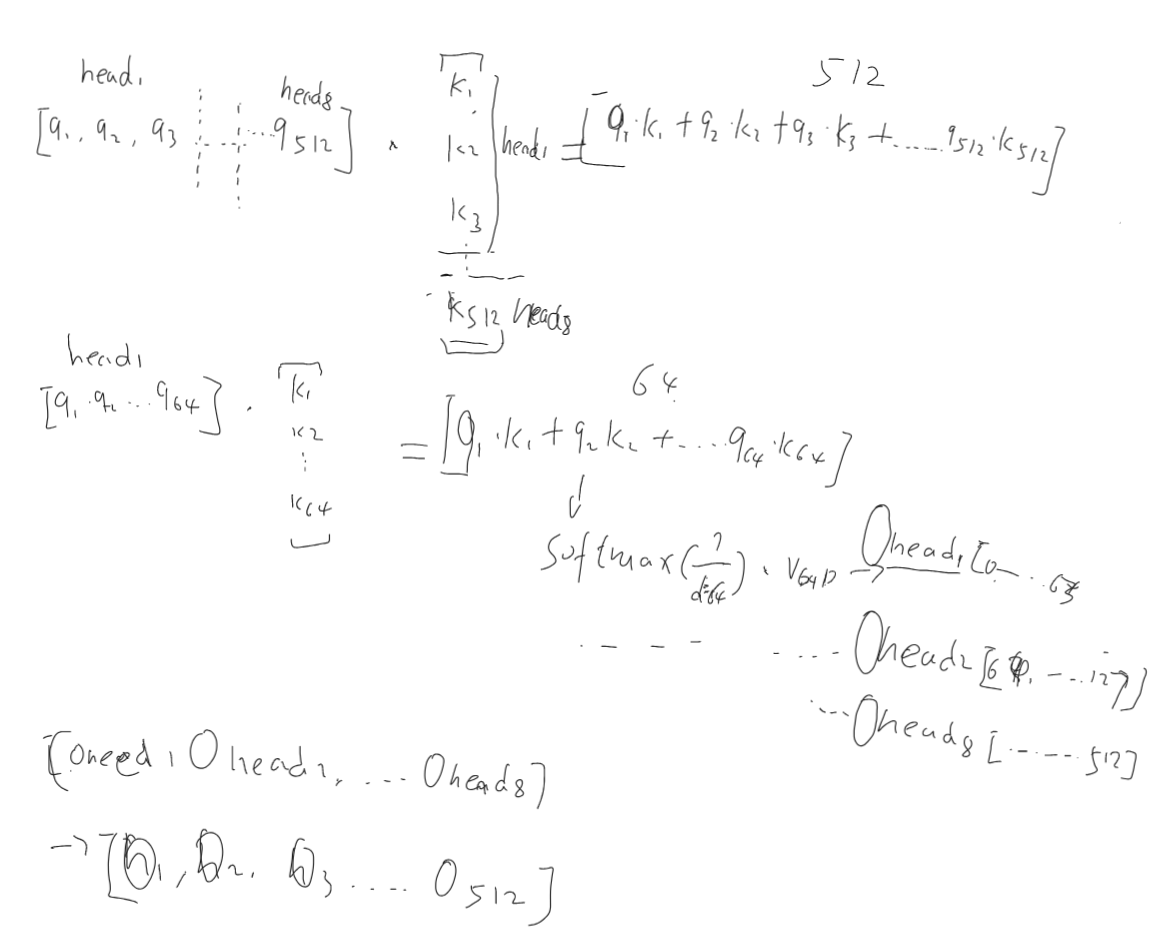 head1 head8
[q1, q2, q3 ...... q512] · [k1 k2 k3 ... k512] head1 head8 = [q1·k1 + q2·k2 + q3·k3 + ...... q512·k512] 512
head1
[q1 q2 ... q64] · [k1 k2 ⋮ k64] = [q1·k1 + q2k2 + .... q64·k64] 64
↓
softmax(?/d=64) · V64D → Ohead1 [0 ... 63
. - - - .... Ohead2 [64, --..127]
.... Ohead8 [.---- 512]
[Ohead1 Ohead2, ... Ohead8]
→ [O1, O2, O3 .... O512]